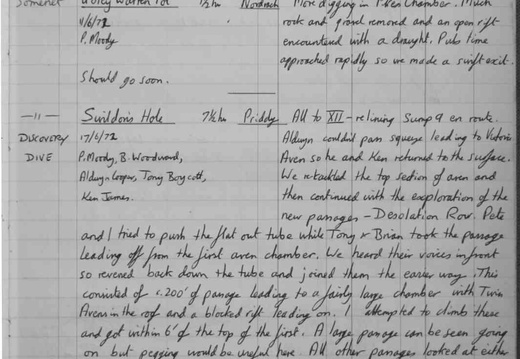 Somerset G.B. Warren Pot 1½ hr Nordrach More digging in Pken Chamber. Much
11/6/72 rock and gravel removed and an open rift
P. Moody encountered with a draught. Pub time
approached rapidly so we made a swift exit.
Should go soon.
—"— Swildon's Hole 7½ hr Priddy All to XII - relining Sump 9 en route.
DISCOVERY 17/6/72 Aldwyn couldn't pass squeeze leading to Victoria
DIVE P. Moody, B. Woodward, Aven so he and Ken returned to the surface.
Aldwyn Cooper, Tony Boycott, We retackled the top section of aven and
Ken James. then continued with the exploration of the
new passages - Desolation Row. Pete
and I tried to push the flat out tube while Tony & Brian took the passage
leading off from the first aven chamber. We heard their voices in front
so reversed back down the tube and joined them the easier way. This
consisted of c.200' of passage leading to a fairly large chamber with Twin
Avens in the roof and a blocked rift leading on. I attempted to climb these
and got within 6' of the top of the first. A large passage can be seen going
on but pegging would be useful here. All other passages looked at either